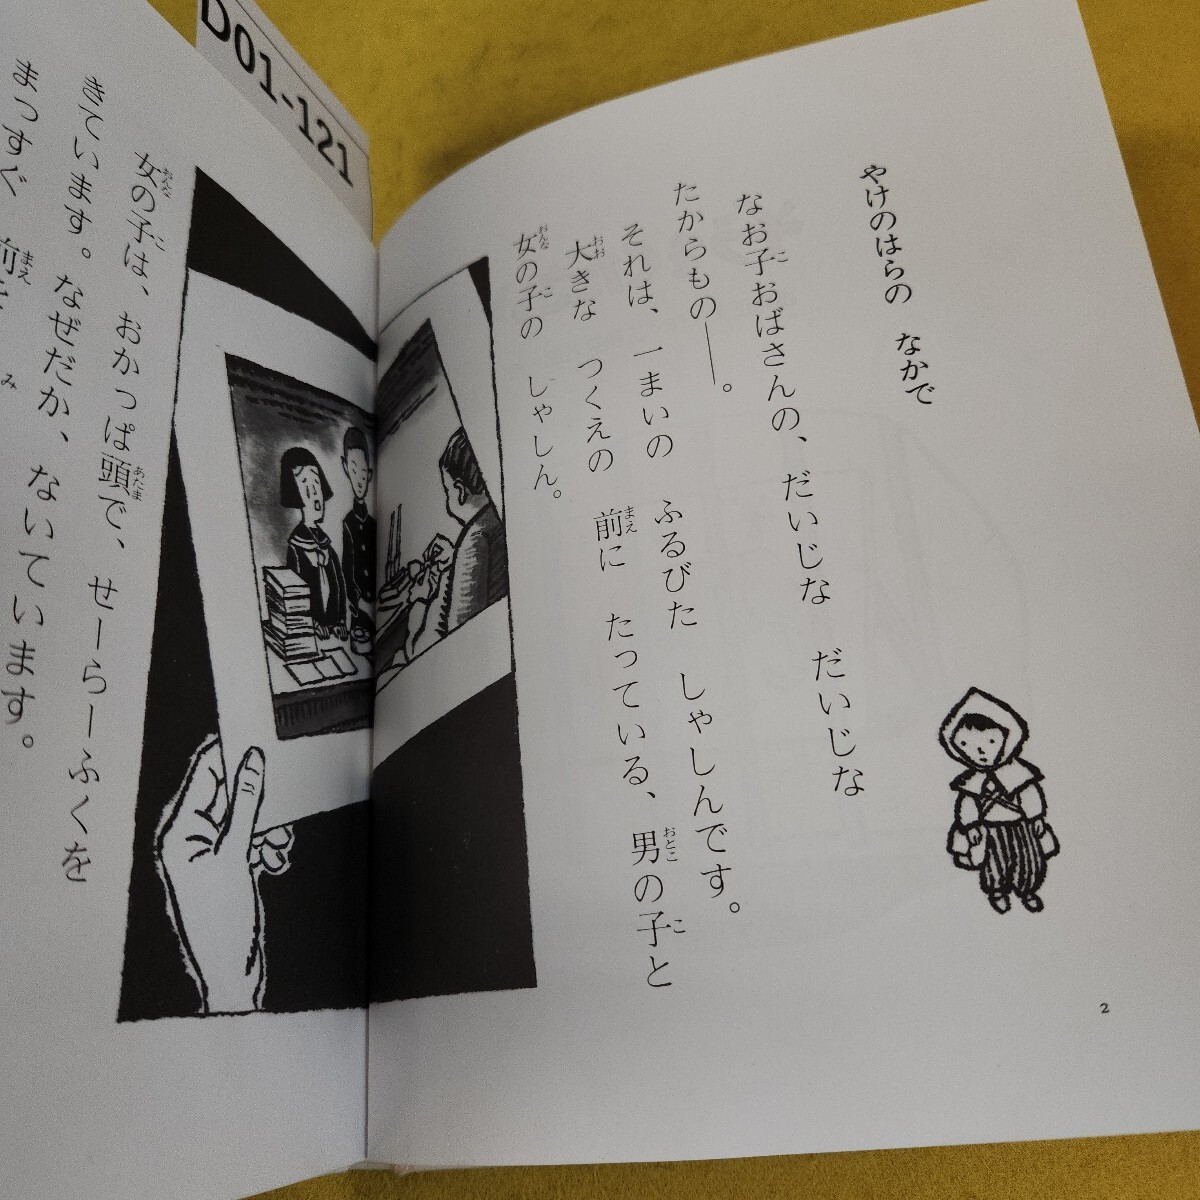 D01-121
やけのはらの なかで
なお子おばさんの、だいじな だいじな
たからもの——。
それは、一まいの ふるびた しゃしんです。
大きな つくえの 前に たっている、男の子と
女の子の しゃしん。
2
女の子は、おかっぱ頭で、せーらーふくを
きています。なぜだか、ないています。
まっすぐ 前を